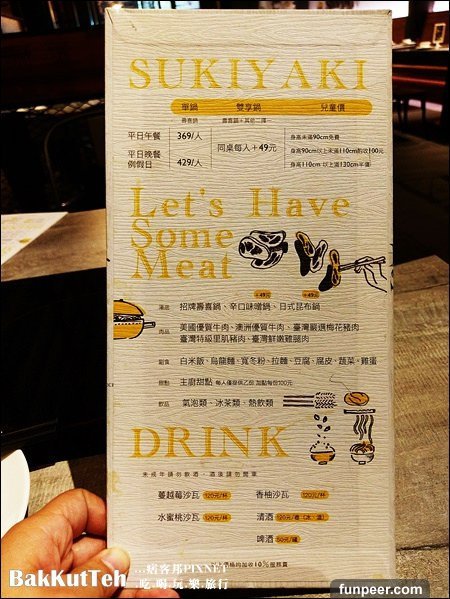 SUKIYAKI
單鍋 雙享鍋 兒童價
壽喜鍋 壽喜鍋+其他二擇一
平日午餐 369/人
平日晚餐
例假日 429/人
同桌每人+49元
身高未滿90cm免費
身高90cm以上未滿110cm酌收100元
身高110cm 以上滿130cm半價
Let's Have
Some
Meat
+49元 +49元
湯底 招牌壽喜鍋、辛口味噌鍋、日式昆布鍋
肉品 美國優質牛肉、澳洲優質牛肉、臺灣嚴選梅花豬肉
臺灣特級里肌豬肉、臺灣鮮嫩雞腿肉
副食 白米飯、烏龍麵、寬冬粉、拉麵、豆腐、腐皮、蔬菜、雞蛋
甜點 主廚甜點 每人僅提供乙份 加點每份100元
飲品 氣泡類、冰茶類、熱飲類
DRINK
未成年請勿飲酒,酒後請勿開車
蔓越莓沙瓦 120元/杯 香柚沙瓦 120元/杯
水蜜桃沙瓦 120元/杯 清酒 120元/壺(冰、溫)
啤酒 80元/罐
加收10%服務費
BakKutTeh
...痞客邦PIXNET
吃.喝.玩.樂.旅行
funpeer.com